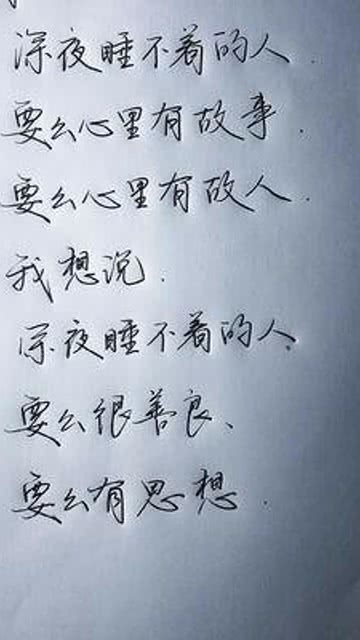 深夜睡不着的人.
要么心里有故事.
要么心里有故人.
我想说.
深夜睡不着的人.
要么很善良、
要么有思想.